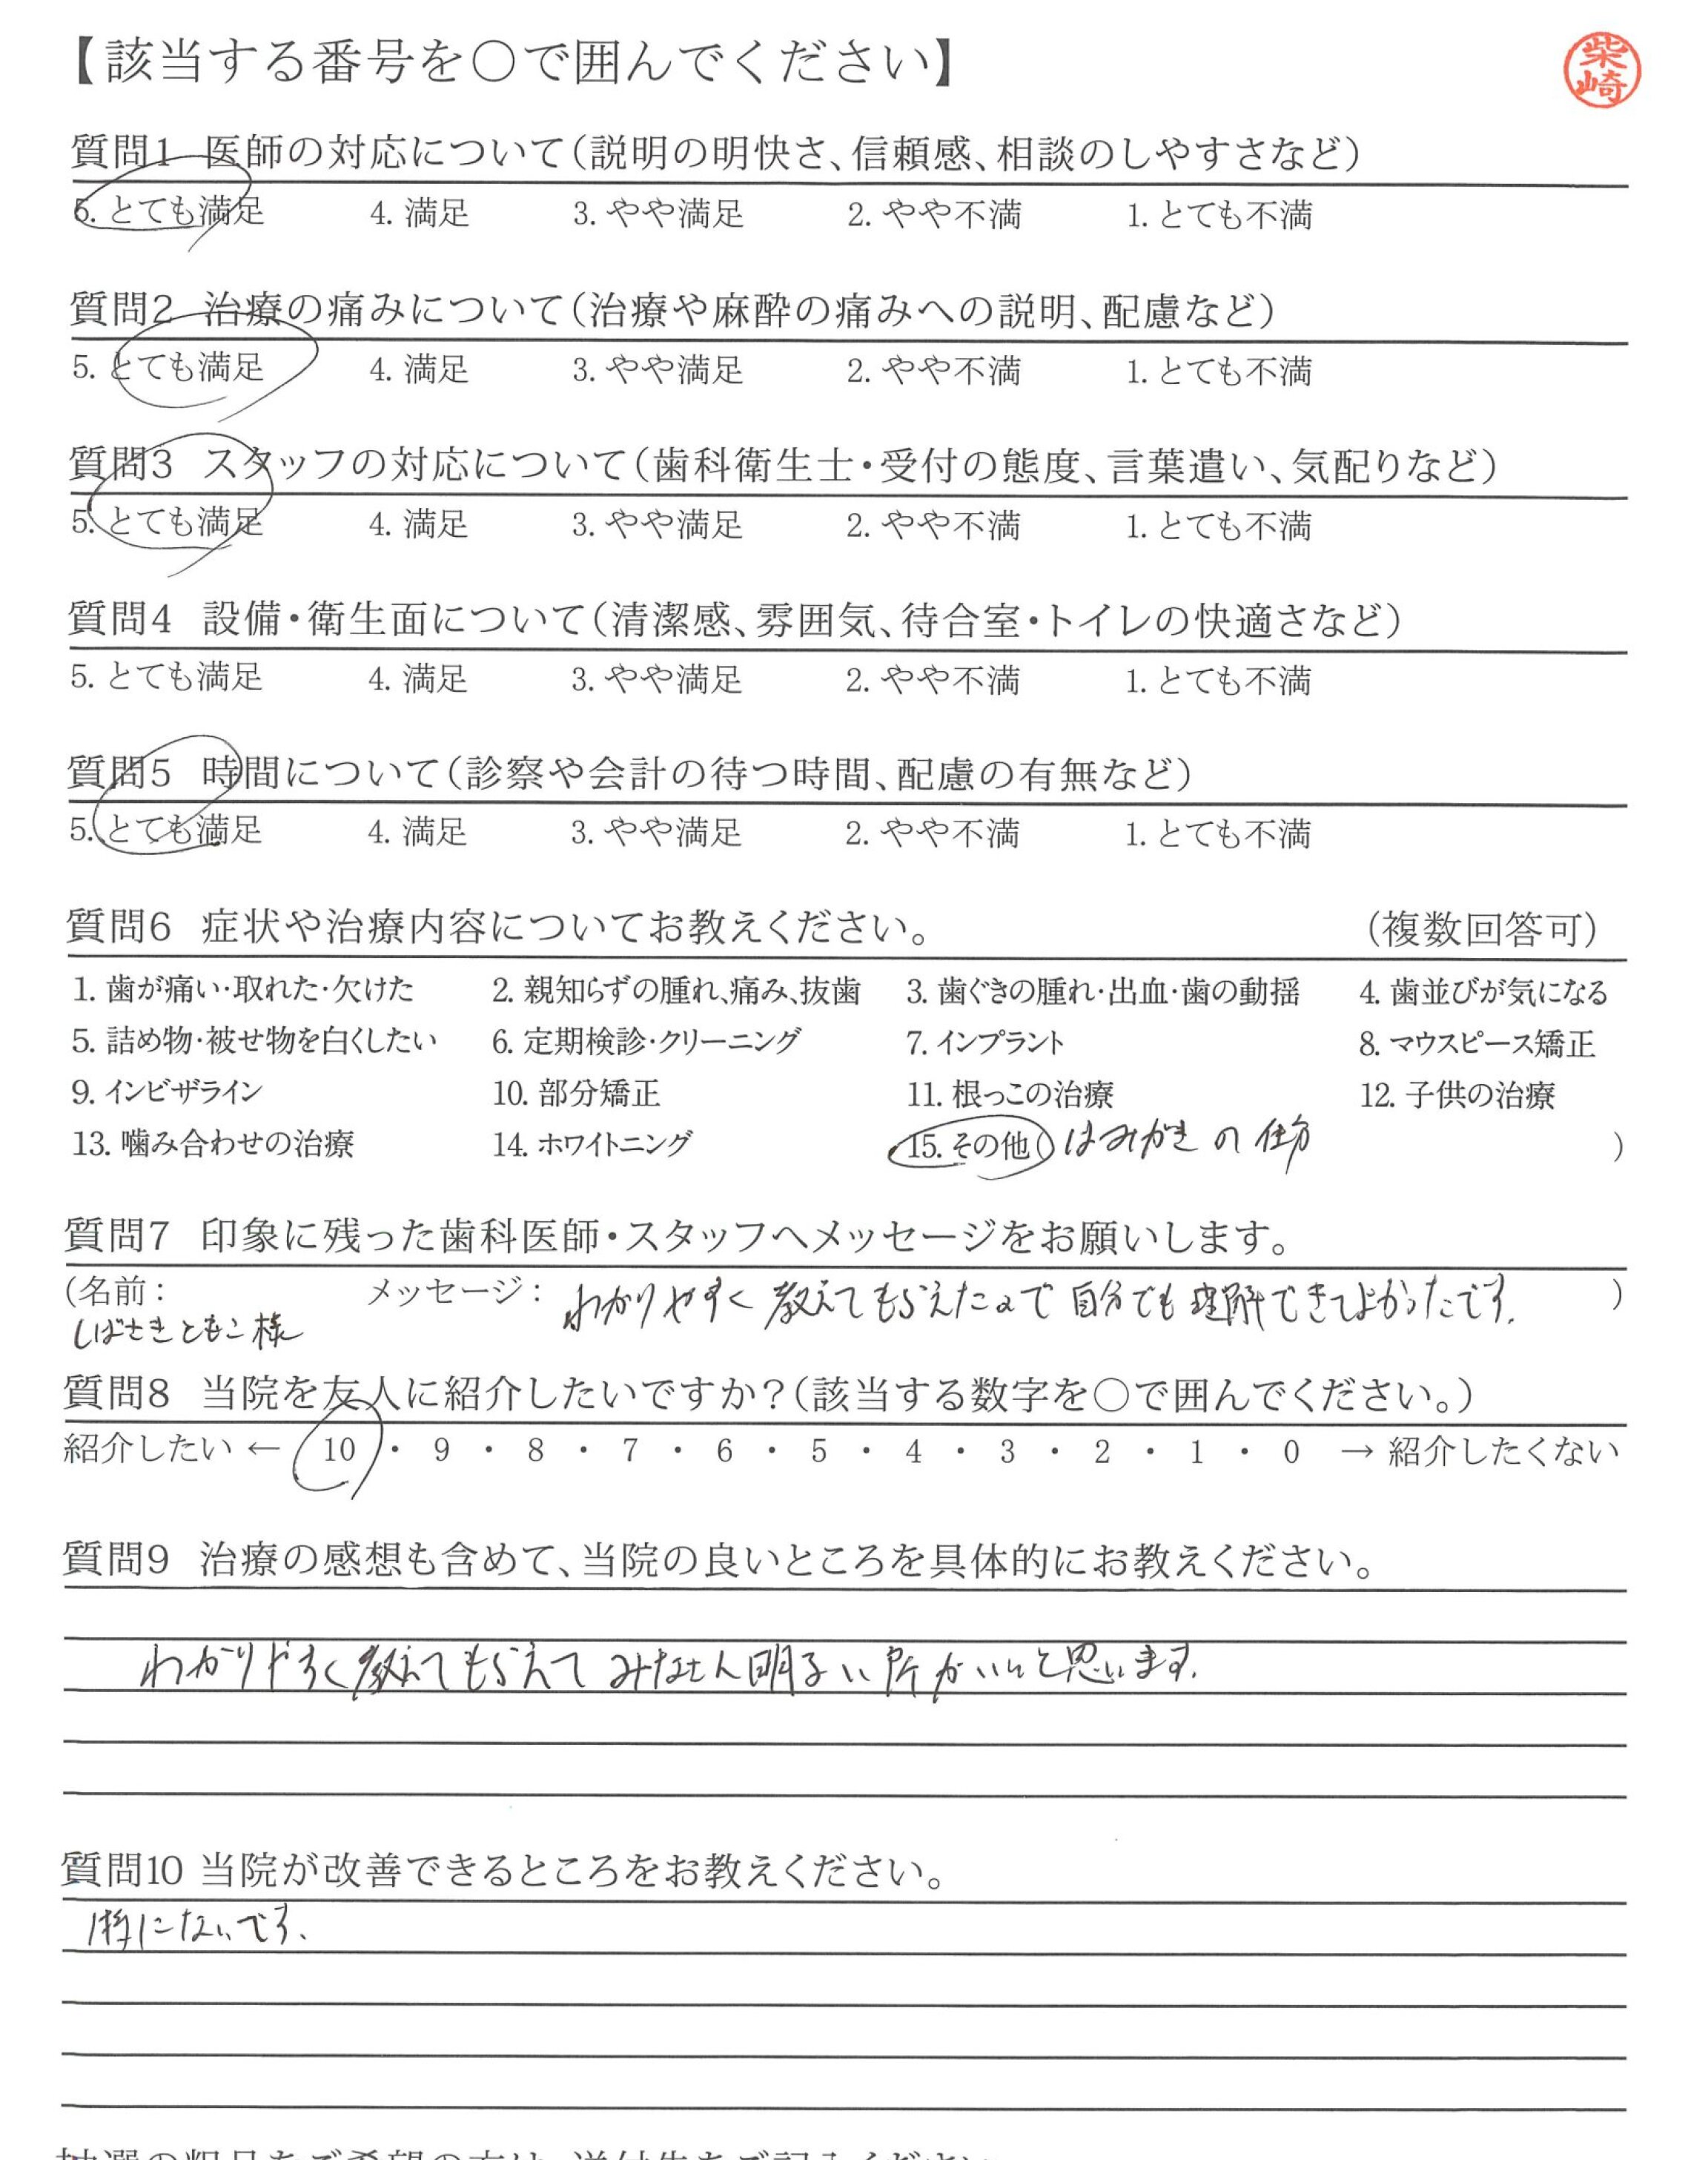 【該当する番号を○で囲んでください】
柴崎
質問1 医師の対応について（説明の明快さ、信頼感、相談のしやすさなど）
5. とても満足 4. 満足 3. やや満足 2. やや不満 1. とても不満
質問2 治療の痛みについて（治療や麻酔の痛みへの説明、配慮など）
5. とても満足 4. 満足 3. やや満足 2. やや不満 1. とても不満
質問3 スタッフの対応について（歯科衛生士・受付の態度、言葉遣い、気配りなど）
5. とても満足 4. 満足 3. やや満足 2. やや不満 1. とても不満
質問4 設備・衛生面について（清潔感、雰囲気、待合室・トイレの快適さなど）
5. とても満足 4. 満足 3. やや満足 2. やや不満 1. とても不満
質問5 時間について（診察や会計の待つ時間、配慮の有無など）
5. とても満足 4. 満足 3. やや満足 2. やや不満 1. とても不満
質問6 症状や治療内容についてお教えください。 （複数回答可）
1. 歯が痛い・取れた・欠けた 2. 親知らずの腫れ、痛み、抜歯 3. 歯ぐきの腫れ・出血・歯の動揺 4. 歯並びが気になる
5. 詰め物・被せ物を白くしたい 6. 定期検診・クリーニング 7. インプラント 8. マウスピース矯正
9. インビザライン 10. 部分矯正 11. 根っこの治療 12. 子供の治療
13. 噛み合わせの治療 14. ホワイトニング 15. その他（はみがきの仕方）
質問7 印象に残った歯科医師・スタッフへメッセージをお願いします。
（名前： メッセージ：わかりやすく教えてもらえたので自分でも理解できてよかったです。）
しばさきともこ様
質問8 当院を友人に紹介したいですか？（該当する数字を○で囲んでください。）
紹介したい ← 10 ・ 9 ・ 8 ・ 7 ・ 6 ・ 5 ・ 4 ・ 3 ・ 2 ・ 1 ・ 0 → 紹介したくない
質問9 治療の感想も含めて、当院の良いところを具体的にお教えください。
わかりやすく教えてもらえてみなさん明るい所がいいと思います。
質問10 当院が改善できるところをお教えください。
特にないです。